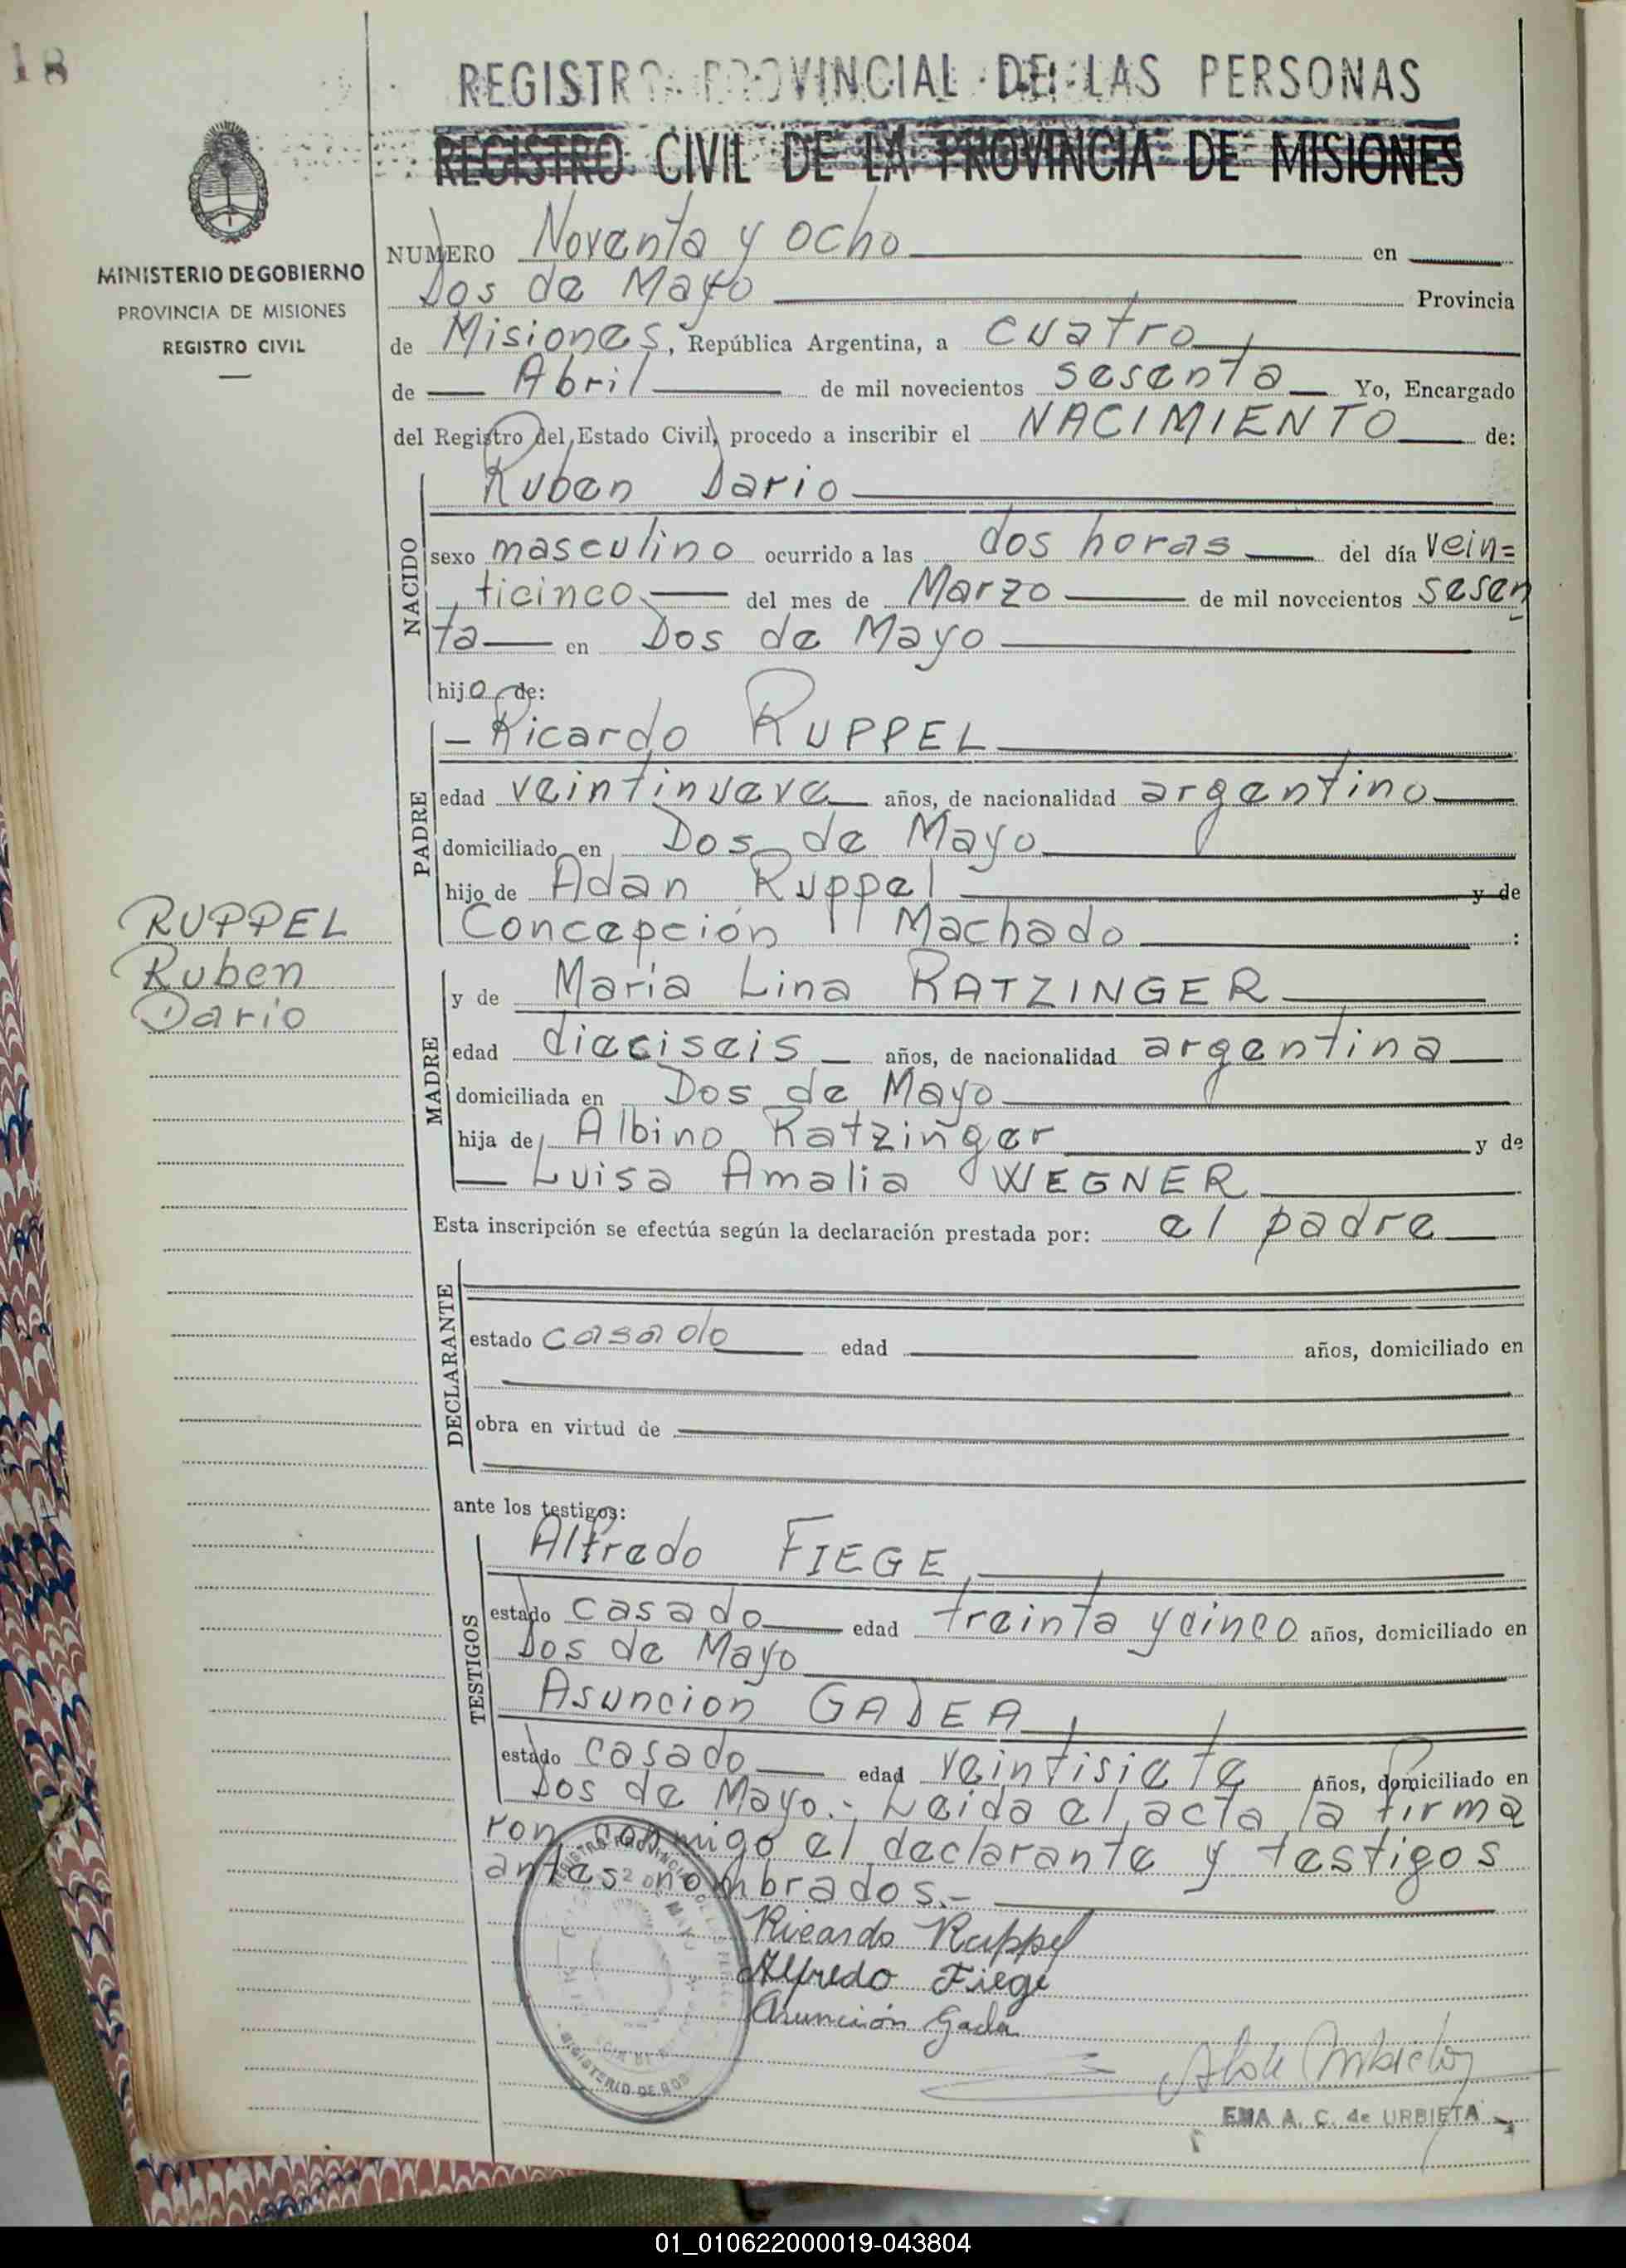 18
REGISTRO PROVINCIAL DE LAS PERSONAS
REGISTRO CIVIL DE LA PROVINCIA DE MISIONES
MINISTERIO DE GOBIERNO
PROVINCIA DE MISIONES
REGISTRO CIVIL
NUMERO Noventa y ocho en
Dos de Mayo Provincia
de Misiones, República Argentina, a cuatro
de Abril de mil novecientos sesenta Yo, Encargado
del Registro del Estado Civil, procedo a inscribir el NACIMIENTO de:
NACIDO
Ruben Dario
sexo masculino ocurrido a las dos horas del día vein=
ticinco del mes de Marzo de mil novecientos sesen
ta en Dos de Mayo
hijo de:
PADRE
Ricardo RUPPEL
edad veintinueve años, de nacionalidad argentino
domiciliado en Dos de Mayo
hijo de Adan Ruppel y de
Concepción Machado :
RUPPEL
Ruben
Dario
MADRE
y de Maria Lina RATZINGER
edad dieciseis años, de nacionalidad argentina
domiciliada en Dos de Mayo
hija de Albino Ratzinger y de
Luisa Amalia WEGNER
Esta inscripción se efectúa según la declaración prestada por: el padre
DECLARANTE
estado casado edad años, domiciliado en
obra en virtud de
ante los testigos:
TESTIGOS
Alfredo FIEGE
estado casado edad treinta y cinco años, domiciliado en
Dos de Mayo
Asuncion GADEA
estado casado edad veintisiete años, domiciliado en
Dos de Mayo.- Leida el acta la firma
ron conmigo el declarante y testigos
antes nombrados.-
Ricardo Ruppel
Alfredo Fiege
Asunción Gadea
EMA A. C. de URBIETA
01_010622000019-043804